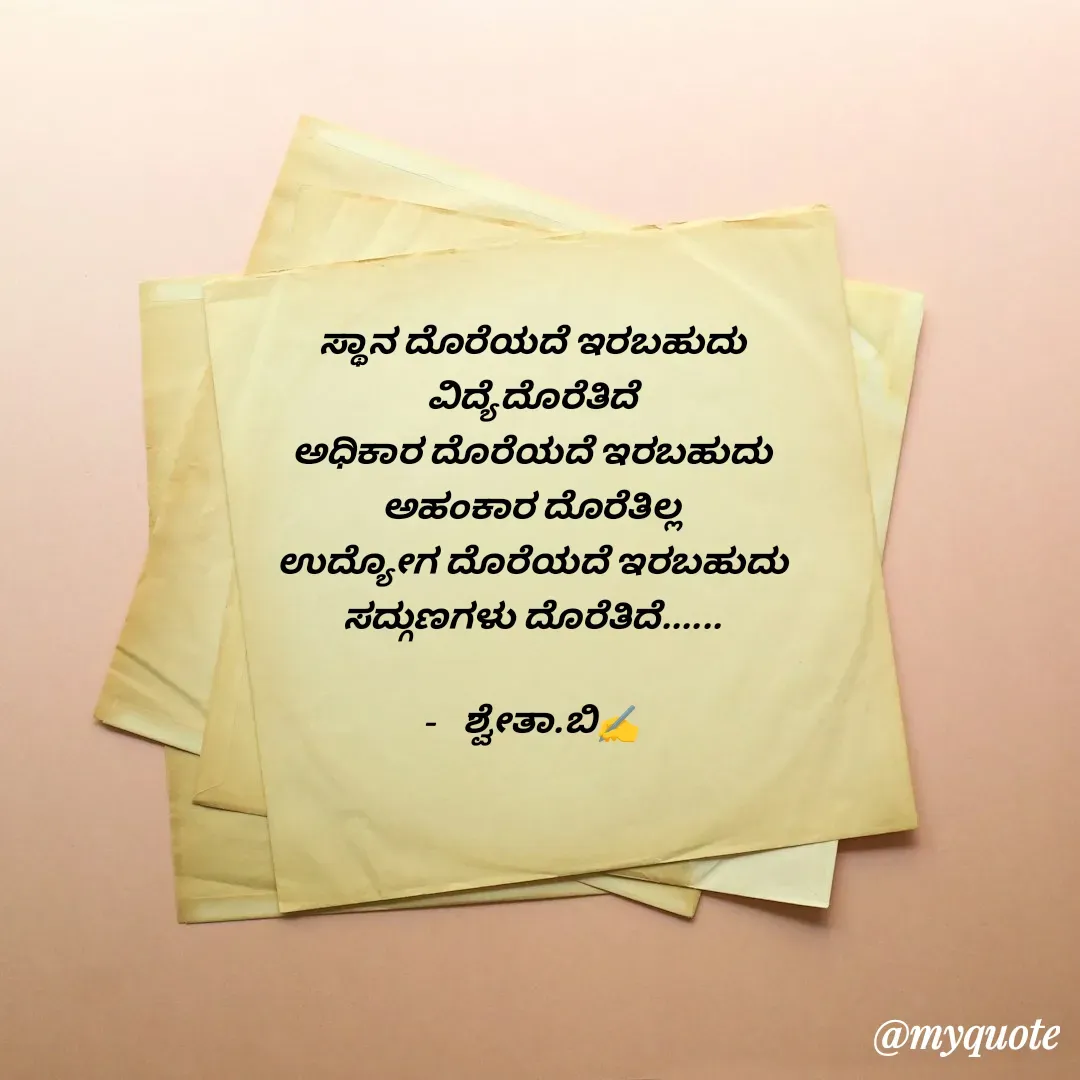 ಸ್ಥಾನ ದೊರೆಯದೆ ಇರಬಹುದು
ವಿದ್ಯೆದೊರೆತಿದೆ
ಅಧಿಕಾರ ದೊರೆಯದೆ ಇರಬಹುದು
ಅಹಂಕಾರ ದೊರೆತಿಲ್ಲ
ಉದ್ಯೋಗ ದೊರೆಯದೆ ಇರಬಹುದು
ಸದ್ಗುಣಗಳು ದೊರೆತಿದೆ......
- ಶ್ವೇತಾ.ಬಿ✍️
@myquote